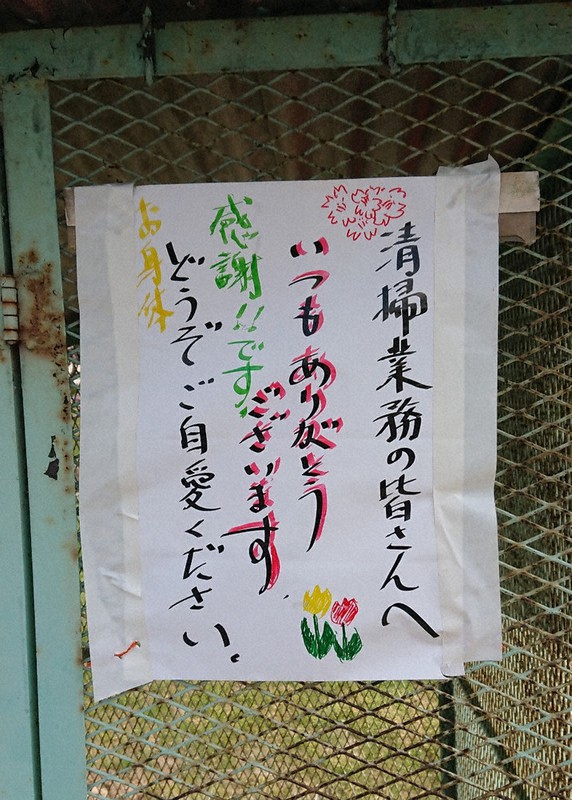 清掃業務の皆さんへ
いつもありがとう
ございます。
感謝!!です!
お身体
どうぞご自愛ください。